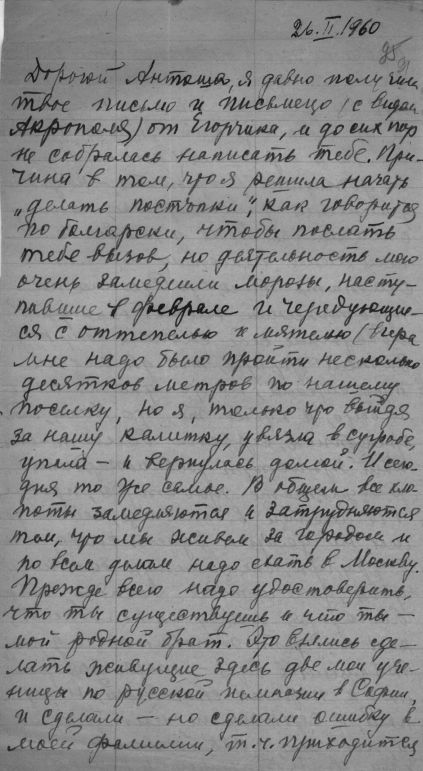 26.II.1960
95
Дорогой Антоша, я давно получила
твое письмо и письмецо (с видом
Акрополя) от Егорчика, и до сих пор
не собралась написать тебе. При-
чина в том, что я решила начать
„делать постъпки“, как говорится
по болгарски, чтобы послать
тебе вызов, но деятельность мою
очень замедлили морозы, насту-
пившие в феврале и чередующие-
ся с оттепелью и мятелью (вчера
мне надо было пройти несколько
десятков метров по нашему
поселку, но я, только что выйдя
за нашу калитку, увязла в сугробе,
упала – и вернулась домой. И сего-
дня то же самое. В общем все хло-
поты замедляются и затрудняются
тем, что мы живем за городом и
по всем делам надо ехать в Москву.
Прежде всего надо удостоверить,
что ты существуешь и что ты –
мой родной брат. Это взялись сде-
лать живущие здесь две мои уче-
ницы по русской гимназии в Софии,
и сделали – но сделали ошибку в
моей фамилии, т.ч. приходится